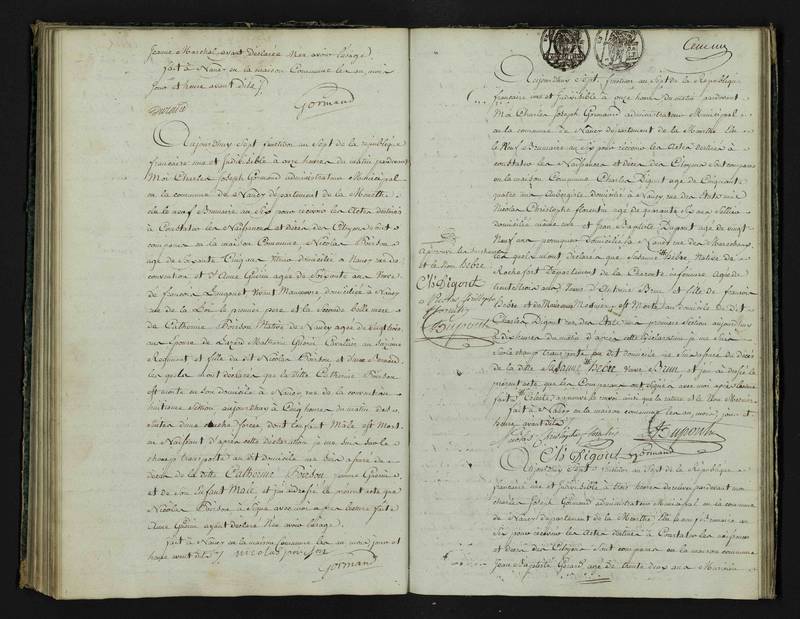 Jeanne Marchal ayant déclarée Non avoir l'usage
fait à Nancy en la maison Commune les an mois
jour et heure avant dits
Gormand
Aujourdhuy Sept frimaire an Sept de la république
francaise une et Indivisible à onze heures du matin pardevant
Moi Charles Joseph Gormand administrateur Municipal
en la commune de Nancy département de la Meurthe
élu le neuf Brumaire an Six pour recevoir les Actes destinés
à Constater les Naissances et décès des Citoyens Sont
comparus en la maison Commune, Nicolas Poirson
agé de Soixante Cinq ans domicilié a Nancy rue de
convention et d'Anne Guerin agée de Soixante ans Veuve
de francois vivant Manoeuvre, domiciliée à Nancy
rue de la Loi, le premier père et la Seconde belle mere
de Catherine Poirson Native de Nancy agée de vingt trois
ans épouse de Cavalier au
Regiment et fille du dit Nicolas Poirson et d'Anne
les quels mont déclarés que la ditte Catherine Poirson
est morte en son domicile à Nancy rue de la convention
huitieme Section aujourdhuy à Cinq heures du matin des
Suites d'une couche forcée dont l'enfant Male est Mort
en Naissant d'après cette déclaration je me suis sur le
champ transporté au dit domicile me suis assuré du
décès de la ditte Catherine Poirson femme
et de Son Enfant Male, et j'ai dréssé le présent acte que
Nicolas Poirson à Signé avec moi lecture faite
Anne Guerin ayant déclaré Non avoir l'usage
fait à Nancy en la maison Commune les an mois jour et
heure avant dits
nicolas poirson
Gormand
Aujourdhuy Sept frimaire an Sept de la République
francaise une et Indivisible à onze heures du matin pardevant
Moi Charles Joseph Gormand administrateur Municipal
en la commune de Nancy département de la Meurthe élu
le Neuf Brumaire an Six pour recevoir les Actes destinés à
constater les Naissances et décès des Citoyens Sont comparus
en la maison Commune Charles Digout agé de Cinquante
quatre ans Aubergiste domicilié à Nancy rue des Etats
Nicolas Christophe florentin agé de quarante Six ans Sellier
domicilié même rue et Jean Baptiste Dupont age de vingt
Neuf ans domicilié à Nancy rue des Marechaux
les quels mont déclarés que Susanne Bebré Native de
Rochefort Département de la Charente inferieure Agée de
ans Veuve d'Antoine Brun et fille de francois
Bebré et de est Morte au domicile du dit
Charles Digout rue des Etats première Section aujourdhuy
à dix heures du matin d'après cette déclaration je me suis
Sur le champ transporté au dit domicile me suis assuré du décès
de la ditte Susanne Bebré Veuve Brun et j'ai dréssé le
présent acte que les Comparans ont Signés avec moi après lecture
faite
fait à Nancy en la maison commune les an mois jour et
heure avant dits
nicolas Christophe florentin
Dupont
Ch Digout
Gormand
Approuvé
et le Nom Bebré
Ch Digout
Nicolas Christophe
florentin
Dupont
Aujourdhuy Sept frimaire an Sept de la République
francaise une et Indivisible à trois heures de relevée pardevant moi
Charles Joseph Gormand administrateur Municipal en la commune
de Nancy département de la Meurthe élu le neuf Brumaire an
Six pour recevoir les Actes destinés à Constater les naissances
et décès des Citoyens Sont comparus en la maison commune
Jean Baptiste Gerard agé de trente deux ans